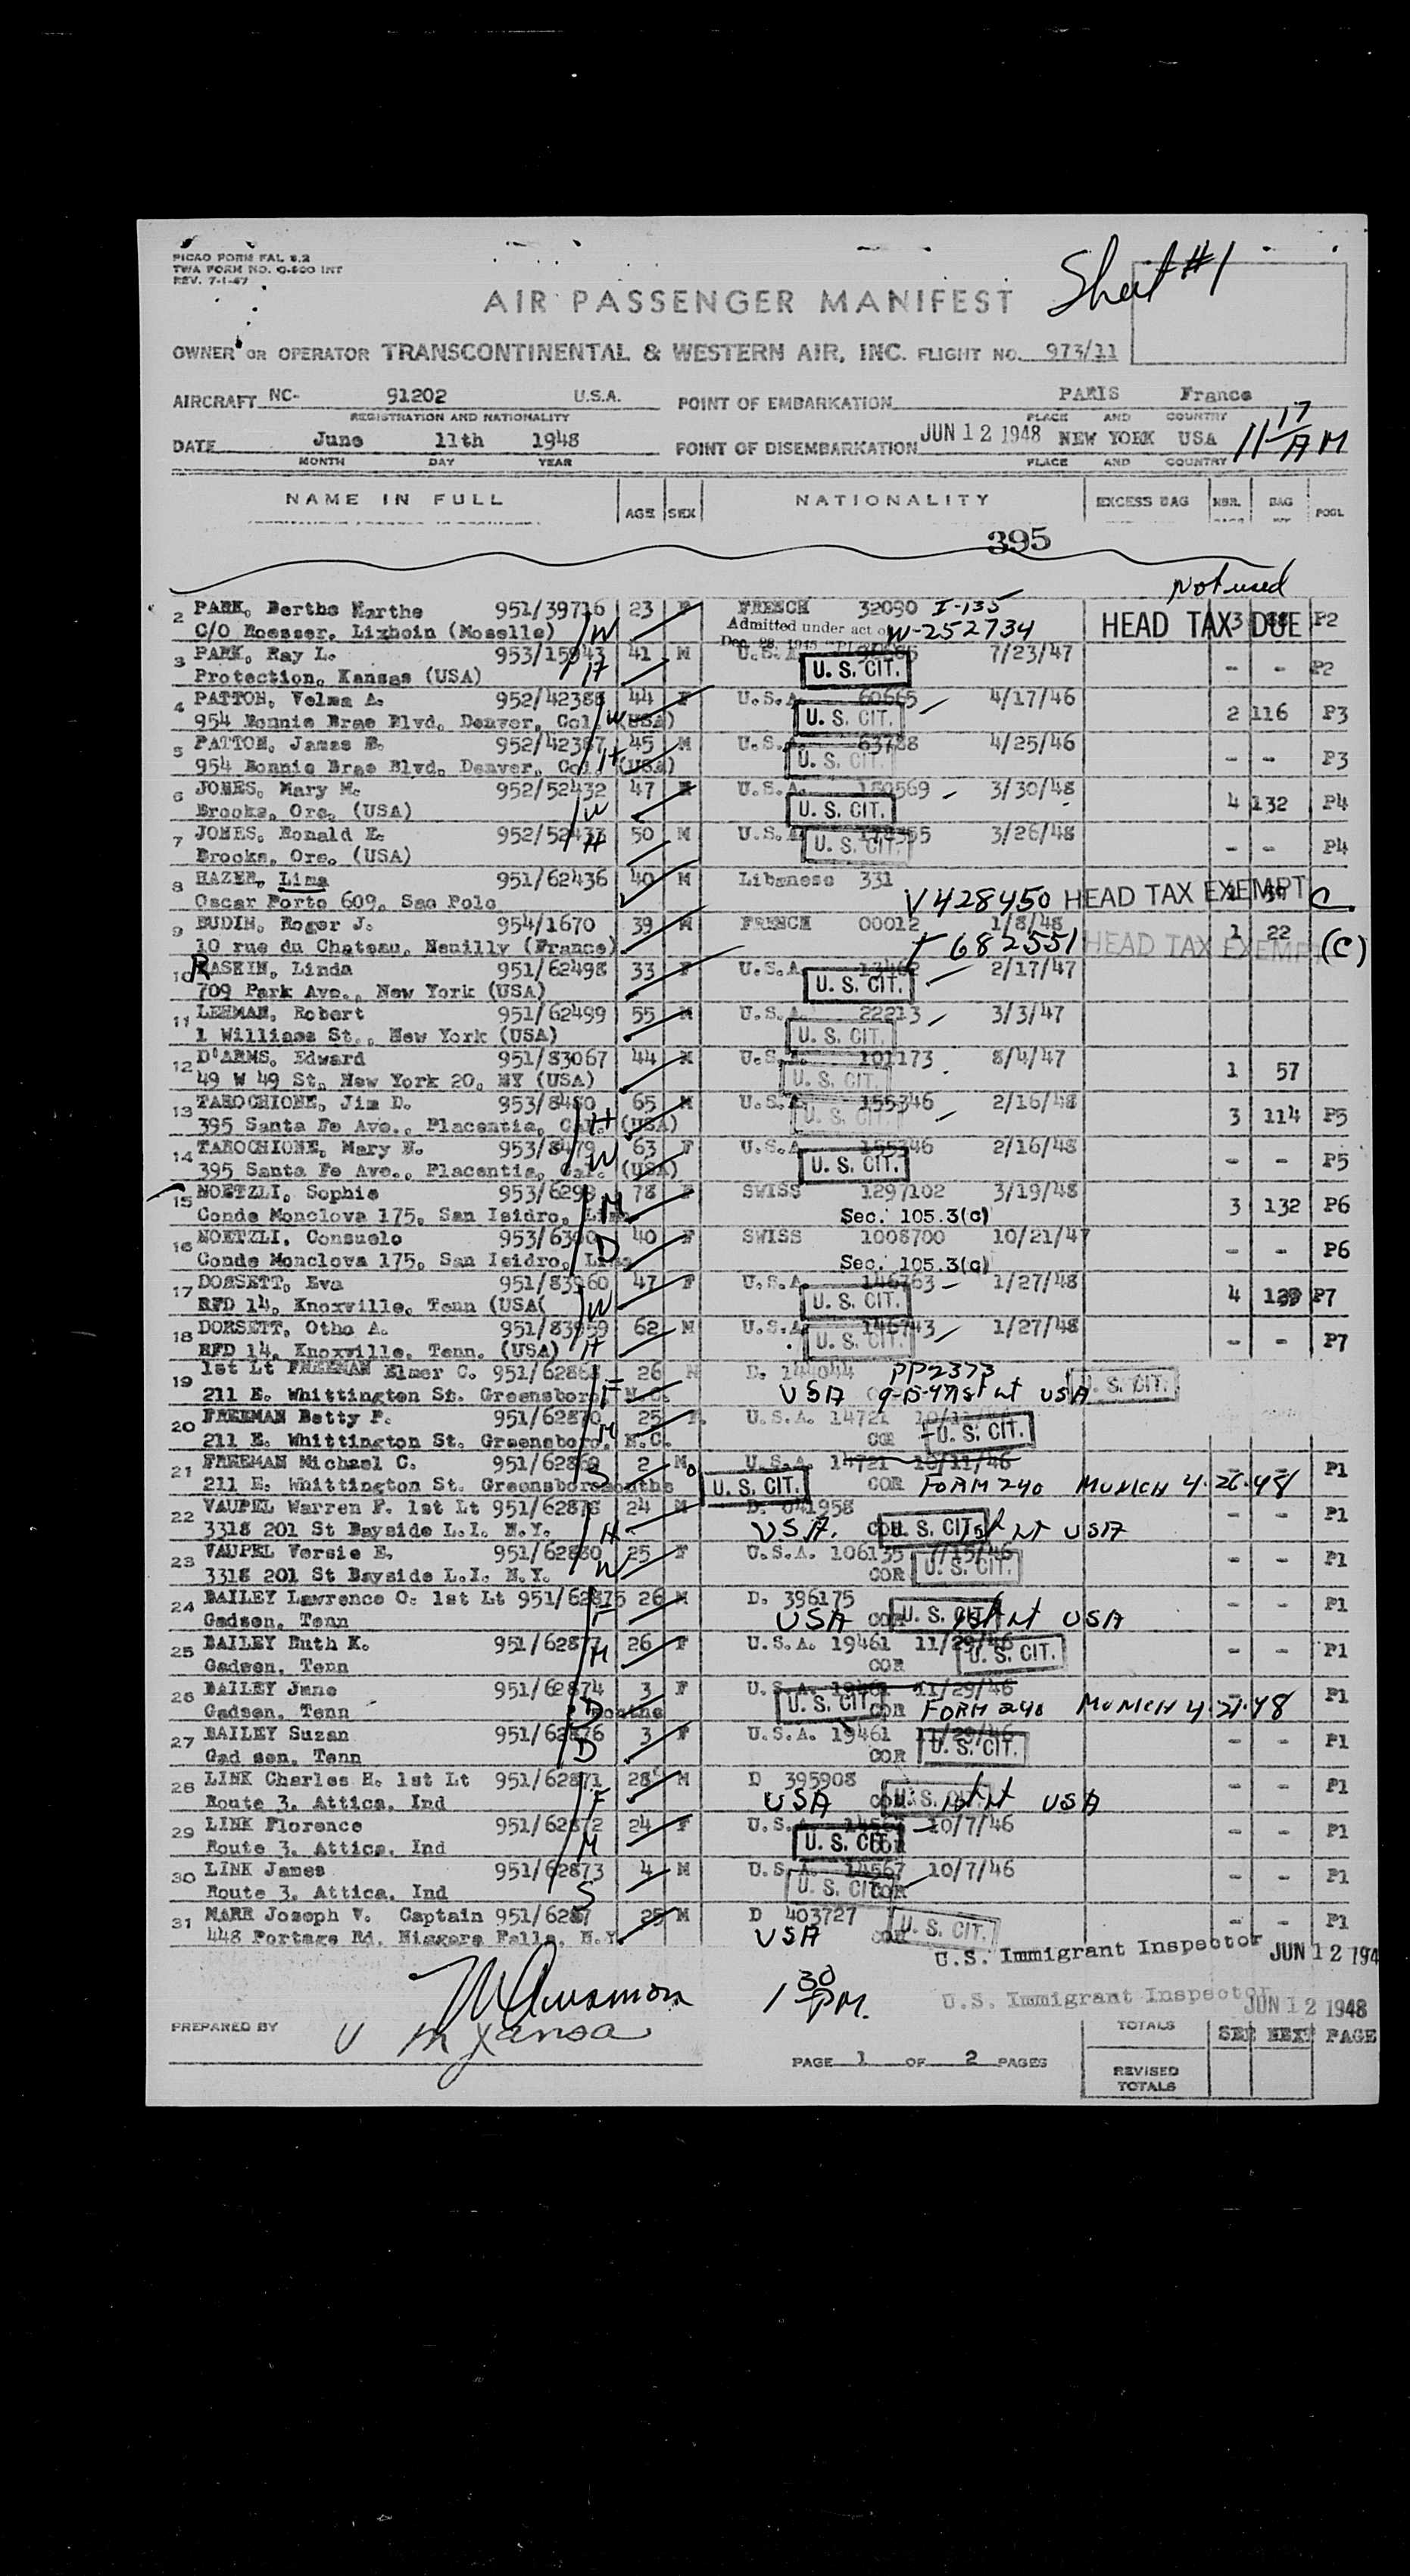 PICAO FORM FAL 8.2
TWA FORM NO. O-500 INT
REV. 7-1-47
Sheet #1
AIR PASSENGER MANIFEST
OWNER OR OPERATOR TRANSCONTINENTAL & WESTERN AIR, INC. FLIGHT NO. 973/11
AIRCRAFT NC- 91202 U.S.A. POINT OF EMBARKATION PARIS France
REGISTRATION AND NATIONALITY PLACE AND COUNTRY
DATE June 11th 1948 POINT OF DISEMBARKATION JUN 12 1948 NEW YORK USA 11 17 AM
MONTH DAY YEAR PLACE AND COUNTRY
NAME IN FULL AGE SEX NATIONALITY EXCESS BAG NBR. BAG POOL
395
Not used
2 PARK, Berthe Marthe 951/39716 23 F FRENCH 32090 I-135 HEAD TAX DUE 3 P2
C/O Roesser, Lixhein (Moselle) W Admitted under act of W-252734
3 PARK, Ray L. 953/15943 41 M U.S.A. 7/23/47 - - P2
Protection, Kansas (USA) H U. S. CIT.
4 PATTON, Velma A. 952/42388 44 F U.S.A. 60665 4/17/46 2 116 P3
954 Bonnie Brae Blvd, Denver, Col. (USA) W U. S. CIT.
5 PATTON, James E. 952/42387 45 M U.S.A. 63788 4/25/46 - - P3
954 Bonnie Brae Blvd, Denver, Col. (USA) H U. S. CIT.
6 JONES, Mary M. 952/52432 47 U.S.A. 180569 3/30/48 4 132 P4
Brooks, Ore. (USA) W U. S. CIT.
7 JONES, Ronald E. 952/52433 50 M U.S.A. 3/26/48 - - P4
Brooks, Ore. (USA) H U. S. CIT.
8 HAZEN, Lima 951/62436 40 M Libanese 331
Oscar Porto 609, Sao Polo V428450 HEAD TAX EXEMPT C.
9 BUDIN, Roger J. 954/1670 39 M FRENCH 00012 1/8/48 1 22
10 rue du Chateau, Neuilly (France) T 682551 HEAD TAX EXEMPT (C)
10 RASKIN, Linda 951/62498 33 F U.S.A. 13462 2/17/47
709 Park Ave., New York (USA) U. S. CIT.
11 LEHMAN, Robert 951/62499 55 M U.S.A. 22213 3/3/47
1 Williams St., New York (USA) U. S. CIT.
12 D'ARMS, Edward 951/83067 44 M U.S.A. 101173 8/4/47 1 57
49 W 49 St, New York 20, NY (USA) U. S. CIT.
13 TAROCHIONE, Jim D. 953/8480 65 M U.S.A. 155346 2/16/48 3 114 P5
395 Santa Fe Ave., Placentia, Cal. (USA) H U. S. CIT.
14 TAROCHIONE, Mary N. 953/8479 63 F U.S.A. 155346 2/16/48 - - P5
395 Santa Fe Ave., Placentia, Cal. (USA) W U. S. CIT.
15 NOETZLI, Sophie 953/6299 78 F SWISS 1297102 3/19/48 3 132 P6
Conde Monclova 175, San Isidro, Lima M Sec. 105.3(c)
16 NOETZLI, Consuelo 953/6300 40 F SWISS 1008700 10/21/47 - - P6
Conde Monclova 175, San Isidro, Lima D Sec. 105.3(c)
17 DORSETT, Eva 951/83960 47 F U.S.A. 146763 1/27/48 4 P7
RFD 14, Knoxville, Tenn (USA( W U. S. CIT.
18 DORSETT, Otho A. 951/83959 62 M U.S.A. 146743 1/27/48 - - P7
RFD 14, Knoxville, Tenn. (USA) H U. S. CIT.
19 1st Lt FREEMAN Elmer C. 951/62868 26 M D. 144044 PP2373
211 E. Whittington St. Greensboro, N.C. F USA 9-15-47 1st Lt USA U. S. CIT.
20 FREEMAN Betty P. 951/62870 25 F. U.S.A. 14721 10/11/46
211 E. Whittington St. Greensboro, N.C. M COR U. S. CIT.
21 FREEMAN Michael C. 951/62869 2 M. U.S.A. 14721 10/11/46 - - P1
211 E. Whittington St. Greensboro months S U. S. CIT. COR FORM 240 MUNICH 4.26.48
22 VAUPEL Warren F. 1st Lt 951/62878 24 M D. 041958 - - P1
3318 201 St Bayside L.I. N.Y. H USA. COR U. S. CIT. 1st Lt USA
23 VAUPEL Versie E. 951/62880 25 F U.S.A. 106135 7/15/46 - - P1
3318 201 St Bayside L.I. N.Y. W COR U. S. CIT.
24 BAILEY Lawrence O. 1st Lt 951/62875 26 M D. 396175 - - P1
Gadsen, Tenn F USA COR U. S. CIT. 1st Lt USA
25 BAILEY Ruth K. 951/62877 26 F U.S.A. 19461 11/29/46 - - P1
Gadsen, Tenn M COR U. S. CIT.
26 BAILEY Jane 951/62874 3 F U.S.A. 19461 11/29/46 - - P1
Gadsen, Tenn D months U. S. CIT. COR FORM 240 MUNICH 4.21.48
27 BAILEY Suzan 951/62876 3 F U.S.A. 19461 11/29/46 - - P1
Gad sen, Tenn D COR U. S. CIT.
28 LINK Charles H. 1st Lt 951/62871 28 M D 395908 - - P1
Route 3, Attica, Ind F USA COR U. S. CIT. 1st Lt USA
29 LINK Florence 951/62872 24 F U.S.A. 14567 10/7/46 - - P1
Route 3, Attica, Ind M U. S. CIT.
30 LINK James 951/62873 4 M U.S.A. 14567 10/7/46 - - P1
Route 3, Attica, Ind S U. S. CIT. COR
31 MARR Joseph V. Captain 951/6287 25 M D 403727 - - P1
448 Portage Rd, Niagara Falls, N.Y. USA COR U. S. CIT.
U.S. Immigrant Inspector JUN 12 194
1 30 PM.
U.S. Immigrant Inspector JUN 12 1948
PREPARED BY
TOTALS SEE NEXT PAGE
PAGE 1 OF 2 PAGES
REVISED TOTALS